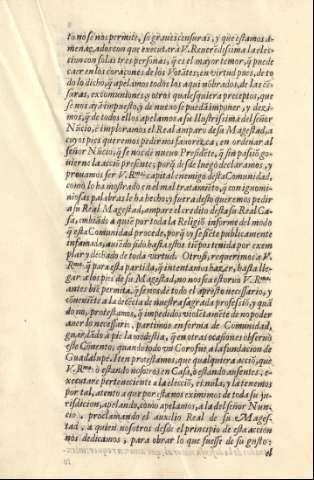 to no se nos permite, so graues censuras, y que estamos a-
menazados con que executarà V. Reuerēdissima la elec-
cion con solas tres personas, q̃ es el mayor temor, q̃ puede
caer en los coraçones de los Votātes; en virtud pues, de to
do lo dicho, q̃ apelamos todos los aqui nōbrados, de las cē-
suras, excomuniones, y otros qualesquiera preceptos, que
se nos ayā impuesto, q̃ de nueuo se puedā imponer, y dezi-
mos, q̃ de todos ellos apelamos a su Ilustrissima del señor
Nūcio, è imploramos el Real amparo de su Magestad, a
cuyos pies queremos pedir nos fauorezca, en ordenar al
señor Nūcio, q̃ se nos dè nueuo Presidēte, q̃ sin passiō go-
uierne la acciō presente; porq̃ desde luego declaramos, y
prouamos ser V. Rma. capital enemigo desta Comunidad,
como lo ha mostrado en el mal tratamiēto, q̃ con ignomi-
niosas palabras le ha hecho; y fuera desto queremos pedir
a su Real Magestad, ampare el credito desta su Real Ca-
sa, embiādo a quiē por toda la Religiō informe del modo
q̃ esta Comunidad procede, porq̃ oy se siēte publicamente
infamada, auiēdo sido hasta estos tiēpos tenida por exem
plar y dechado de toda virtud. Otrosi, requerimos a V.
Rma. q̃ para esta partida, q̃ intentamos hazer, hasta lle-
gar a los pies de su Magestad, no nos sea estoruo V. Rma.
antes biē permita, q̃ se nos dè todo el apresto necessario, y
cōueniēte a la decēcia de nuestra sagrada profession, y quā
do no, protestamos, q̃ impedidos violētamēte de no poder
auer lo necessario, partimos en forma de Comunidad,
guardādo a pie la modestia, q̃ en otras ocasiones obseruò
este Cōuento, quando todo vn Coro fue a la fundacion de
Guadalupe. Iten protestamos, que qualquiera acciō, que
V. Rma. ò estando nosotros en Casa, ò estando ausentes, e-
xecutare perteneciente a la elecciō, es nula, y la tenemos
por tal, atento a que por estamos eximimos de toda su ju-
risdicion, apelando, como apelamos, a la del señor Nun-
cio, proclamando el auxilio Real de su Mages-
tad, a quien nosotros desde el principio de esta acciōn
nos dedicamos, para obrar lo que fuesse de su gusto:
el